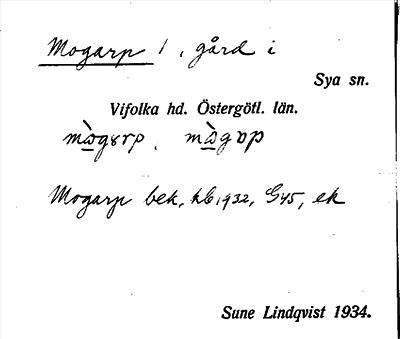 Mogarp 1, gård i
Sya sn.
Vifolka hd. Östergötl. län.
Mogarp bek, kb, 1932, G45, ek
Sune Lindqvist 1934.